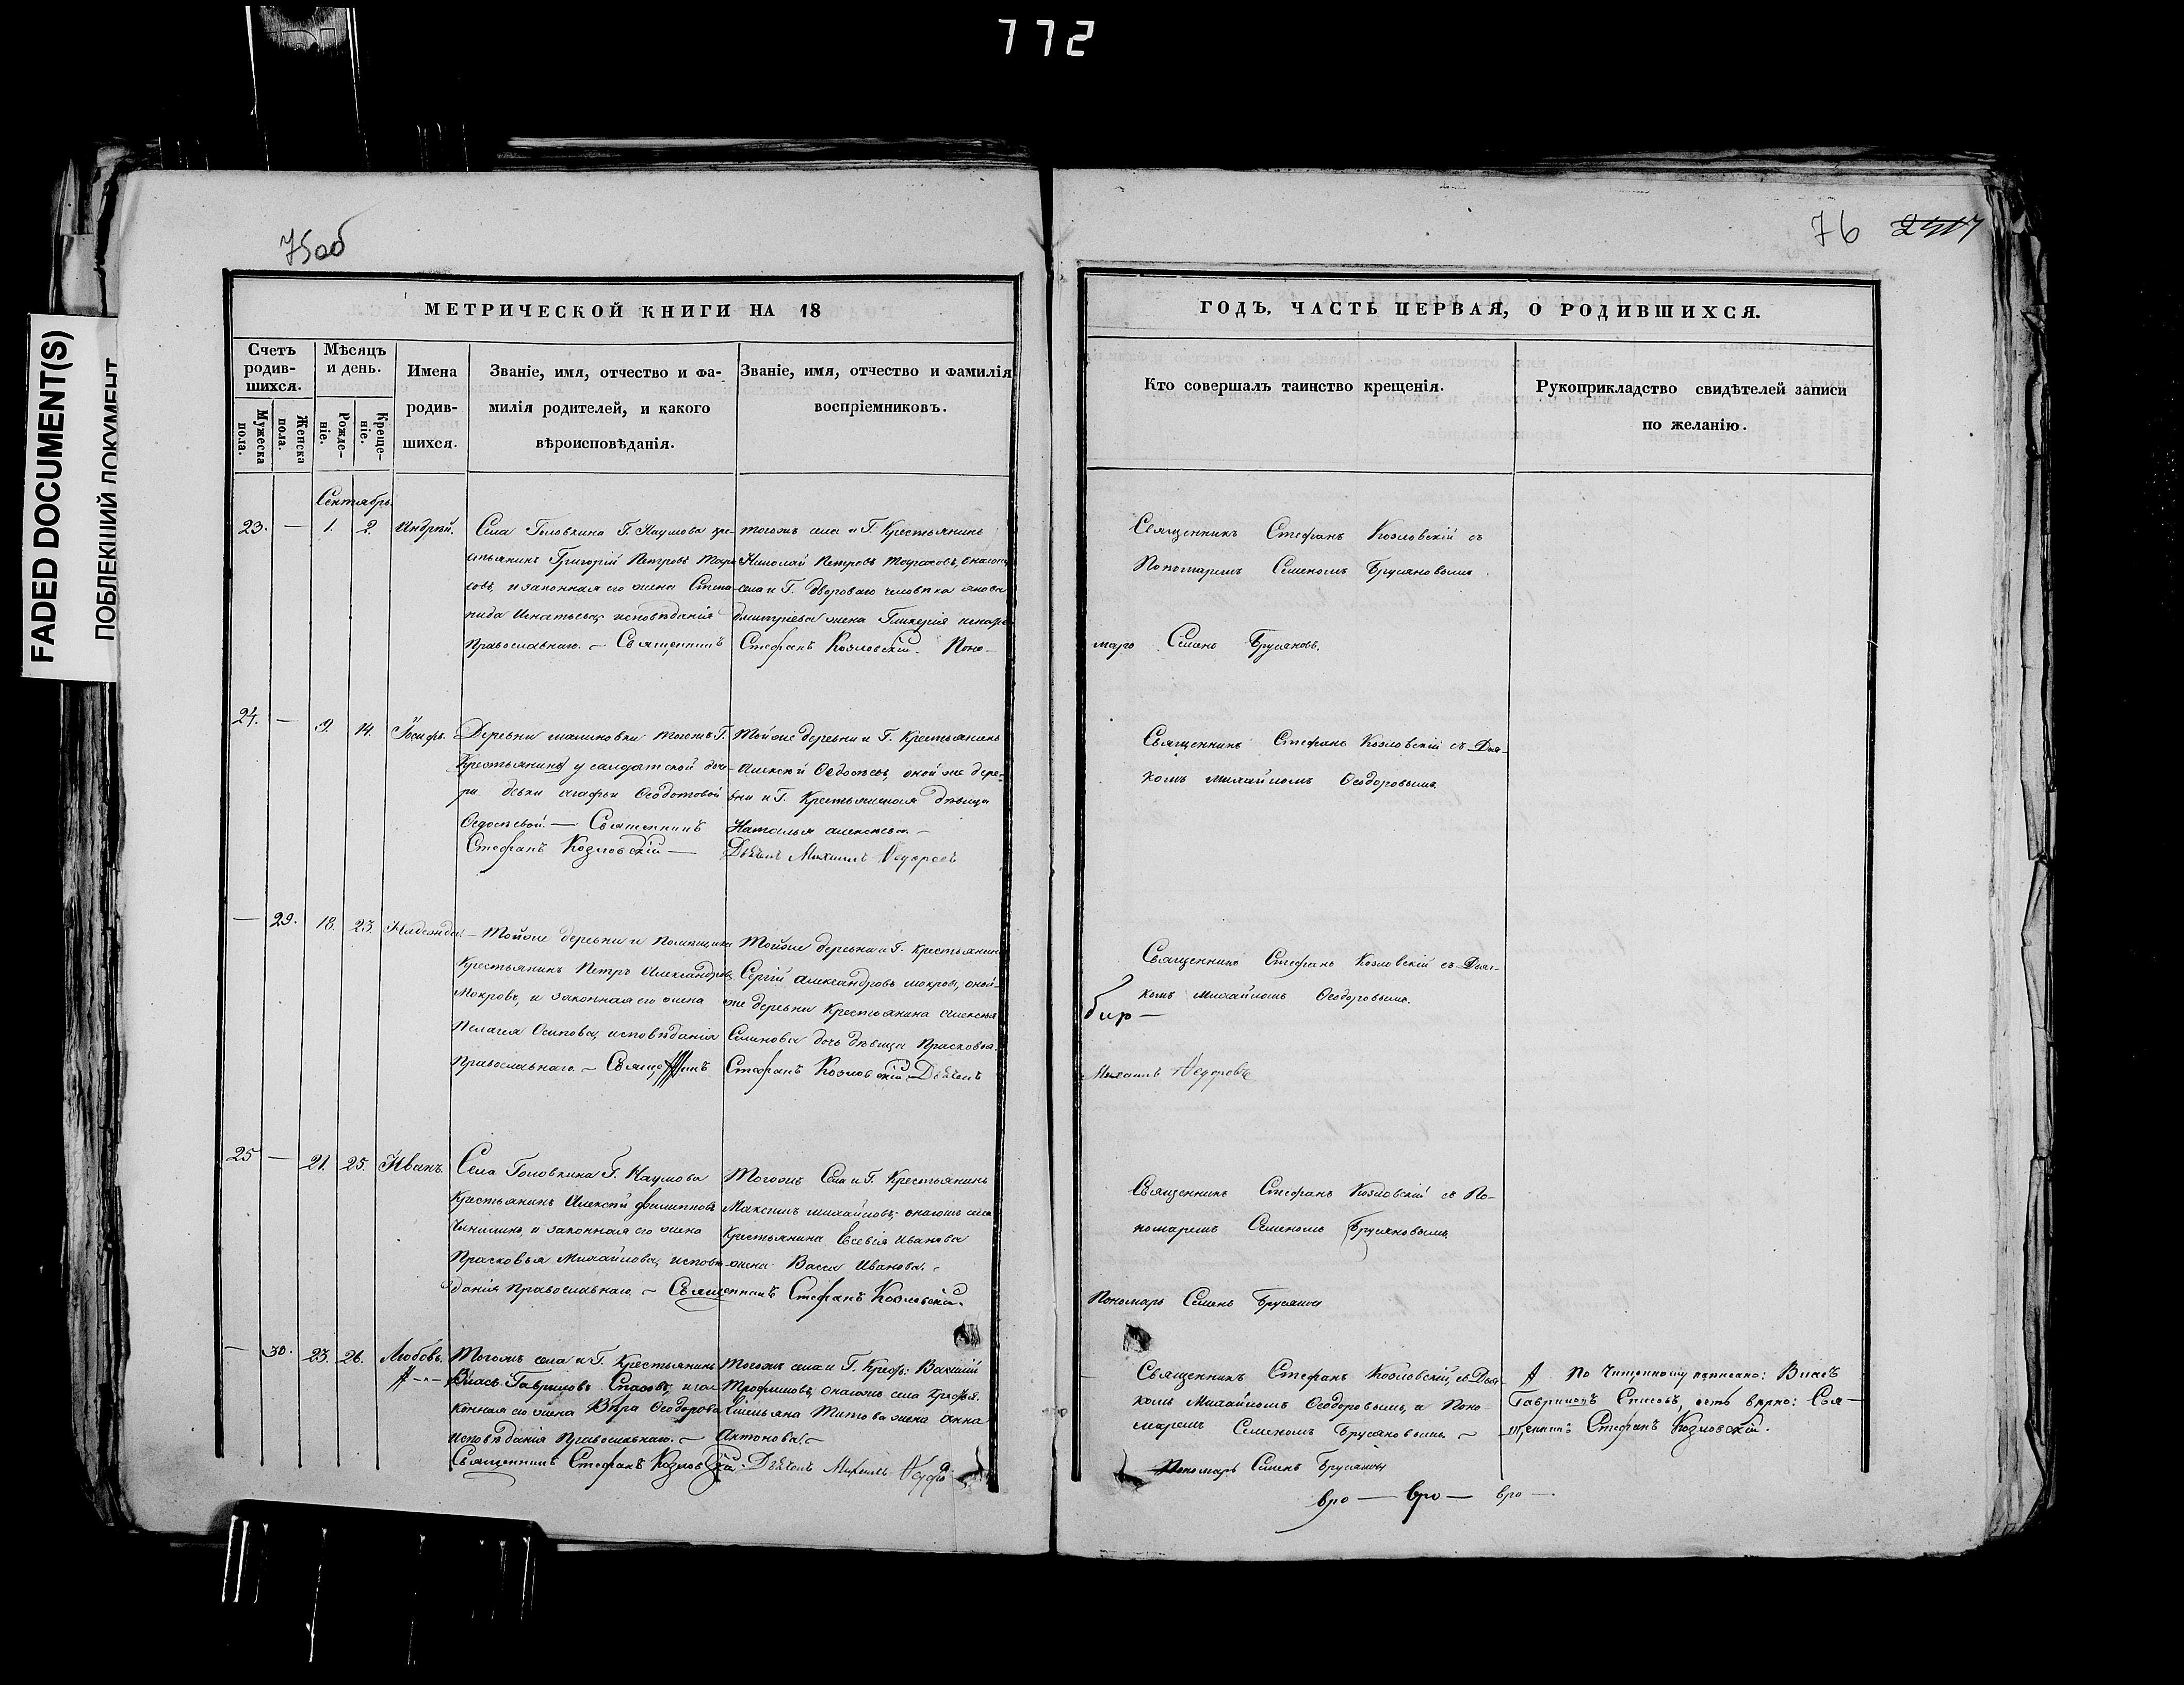 772
FADED DOCUMENT(S)
ПОБЛЕКШИЙ ДОКУМЕНТ
75об
МЕТРИЧЕСКОЙ КНИГИ НА 18
Счетъ родив-шихся.
Мужеска пола.
Женска пола.
Мѣсяцъ и день.
Рожде-ніе.
Креще-ніе.
Имена родив-шихся.
Званіе, имя, отчество и фа-
милія родителей, и какого
вѣроисповѣданія.
Званіе, имя, отчество и фамилія
воспріемниковъ.
Сентябрь
23. — 1. 2. Андрей.
Села Головкина Г. Наумова кре-
стьянинъ Григорій Петровъ
и законная его жена Степа-
нида Игнатьева, исповѣданія
Православнаго. – Священникъ
тогожъ села и Г. Крестьянинъ
Николай Петровъ
села и Г. двороваго человѣка
Дмитріева жена Гликерія
Стефанъ Козловскій. Поно-
24. — 9. 14. Іосифъ.
Деревни малиновки тогожъ Г.
Крестьянина у салдатской доче-
ри девки Агафьи Ѳеодотовой
Ѳедосѣевой. — Священникъ
Стефанъ Козловскій —
Тойже деревни и Г. Крестьянинъ
Алексѣй Ѳедосѣевъ, оной же дере-
вни и Г. Крестьянская дѣвица
Наталья алексѣева. –
Дьячекъ Михаилъ Ѳедоровъ
— 29. 18. 23. Надежда.
Тойже деревни и помещика
Крестьянинъ Петръ Александровъ
Мокровъ, и законная его жена
Пелагея Осипова, исповѣданія
Православнаго. –
Тойже деревни и Г. Крестьянинъ
Сергій Александровъ мокровъ, оной-
же деревни Крестьянина алексѣя
Семенова дочь дѣвица Прасковья.
Стефанъ Козловскій. Дьячекъ
25 — 21. 25. Иванъ.
Села Головкина Г. Наумова
Крестьянинъ Алексѣй филипповъ
и законная его жена
Прасковья Михайлова, исповѣ-
данія Православнаго. – Священникъ
Тогожъ Села и Г. Крестьянинъ
Максимъ михайловъ, онагожъ села
Крестьянина Евсевія Иванова
жена Васса Иванова. –
Стефанъ Козловскій.
— 30. 23. 26. Любовь.
Тогожъ села и Г. Крестьянинъ
Власъ Гавриловъ Спасовъ, и за-
конная его жена Вѣра Ѳеодорова
исповѣданія Православнаго. –
Священникъ Стефанъ Козловскій.
Тогожъ села и Г. Крест. Василій
Трофимовъ, онагожъ села крест.
Емельяна Титова жена Анна
Антонова. –
Дьячекъ Михаилъ
76
ГОДЪ, ЧАСТЬ ПЕРВАЯ, О РОДИВШИХСЯ.
Кто совершалъ таинство крещенія.
Рукоприкладство свидѣтелей записи
по желанію.
Священникъ Стефанъ Козловскій съ
Пономаремъ Семеномъ Брусяновымъ.
марь Семенъ Брусяновъ.
Священникъ Стефанъ Козловскій съ Дья-
комъ михайломъ Ѳеодоровымъ.
Священникъ Стефанъ Козловскій съ Дьяч-
комъ михайломъ Ѳеодоровымъ.
Михаилъ Ѳедоровъ
Священникъ Стефанъ Козловскій съ По-
номаремъ Семеномъ Брусяновымъ.
Пономарь Семенъ Брусяновъ
Священникъ Стефанъ Козловскій, съ Дьяч-
комъ Михайломъ Ѳеодоровымъ, и Поно-
маремъ Семеномъ Брусяновымъ. –
Пономарь Семенъ Брусяновъ
По чищенному написано: Власъ
Гавриловъ Спасовъ, есть вѣрно: Свя-
щенникъ Стефанъ Козловскій.